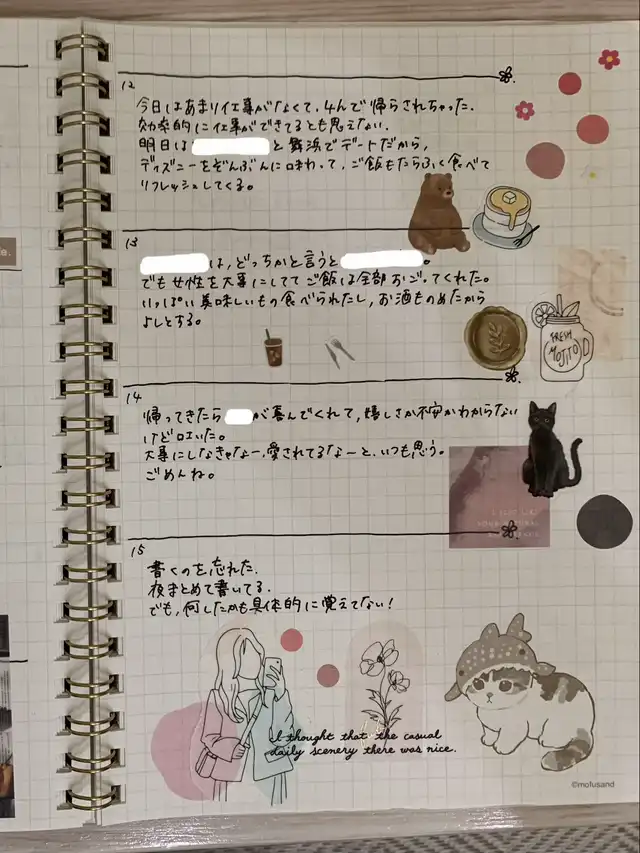 12
今日はあまり仕事がなくて、4んで帰らされちゃった.
効率的に仕事ができてるとも思えない.
明日は と舞浜でデートだから,
ディズニーをぞんぶんに味わって、ご飯もたらふく食べて
リフレッシュしてくる。
13
は,どっちかと言うと 。
でも女性を大事にしてて ご飯は全部おごってくれた。
いっぱい美味しいもの食べられたし,お酒ものめたから
よしとする。
FRESH
MOJITO
14
帰ってきたら が喜んでくれて,嬉しさか不安かわからない
けど 泣いた。
大事にしなきゃなー,愛されてるなーと、いつも思う。
ごめんね。
15
書くのを忘れた.
夜まとめて書いてる.
でも,何したかも具体的に覚えてない!
I thought that the casual
daily scenery there was nice.
©mofusand